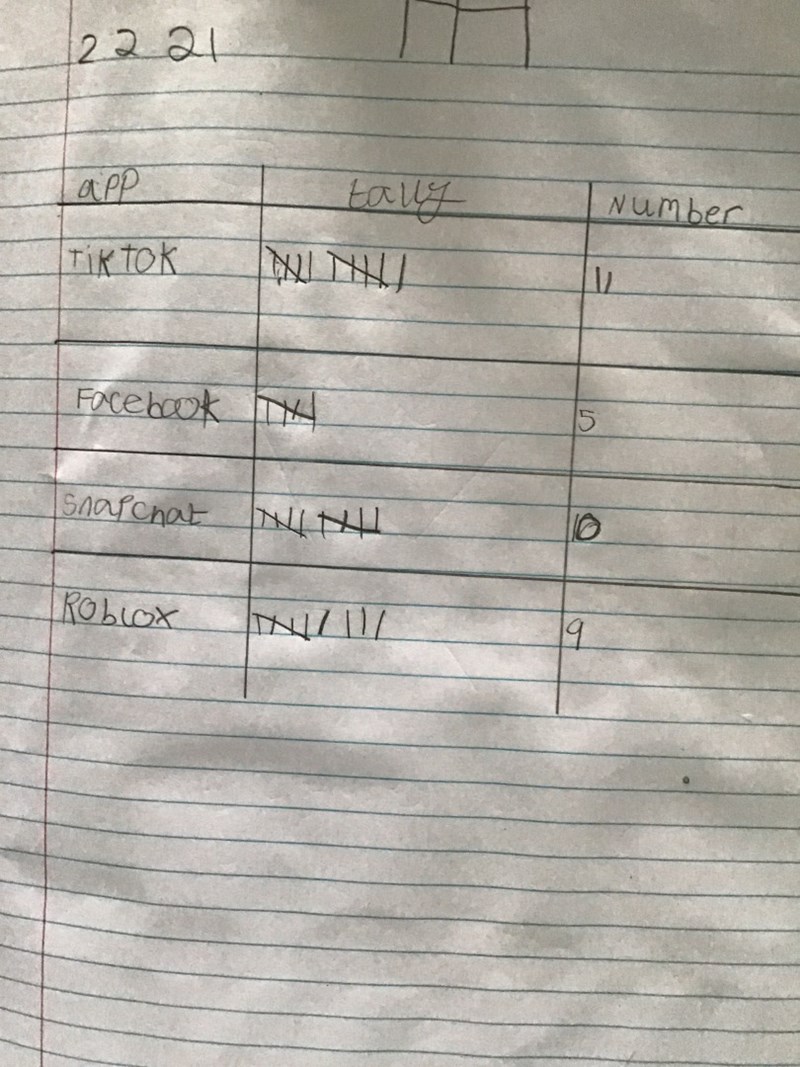 2 2 21
app tally Number
TikTok 11
Facebook 5
Snapchat 10
Roblox 9